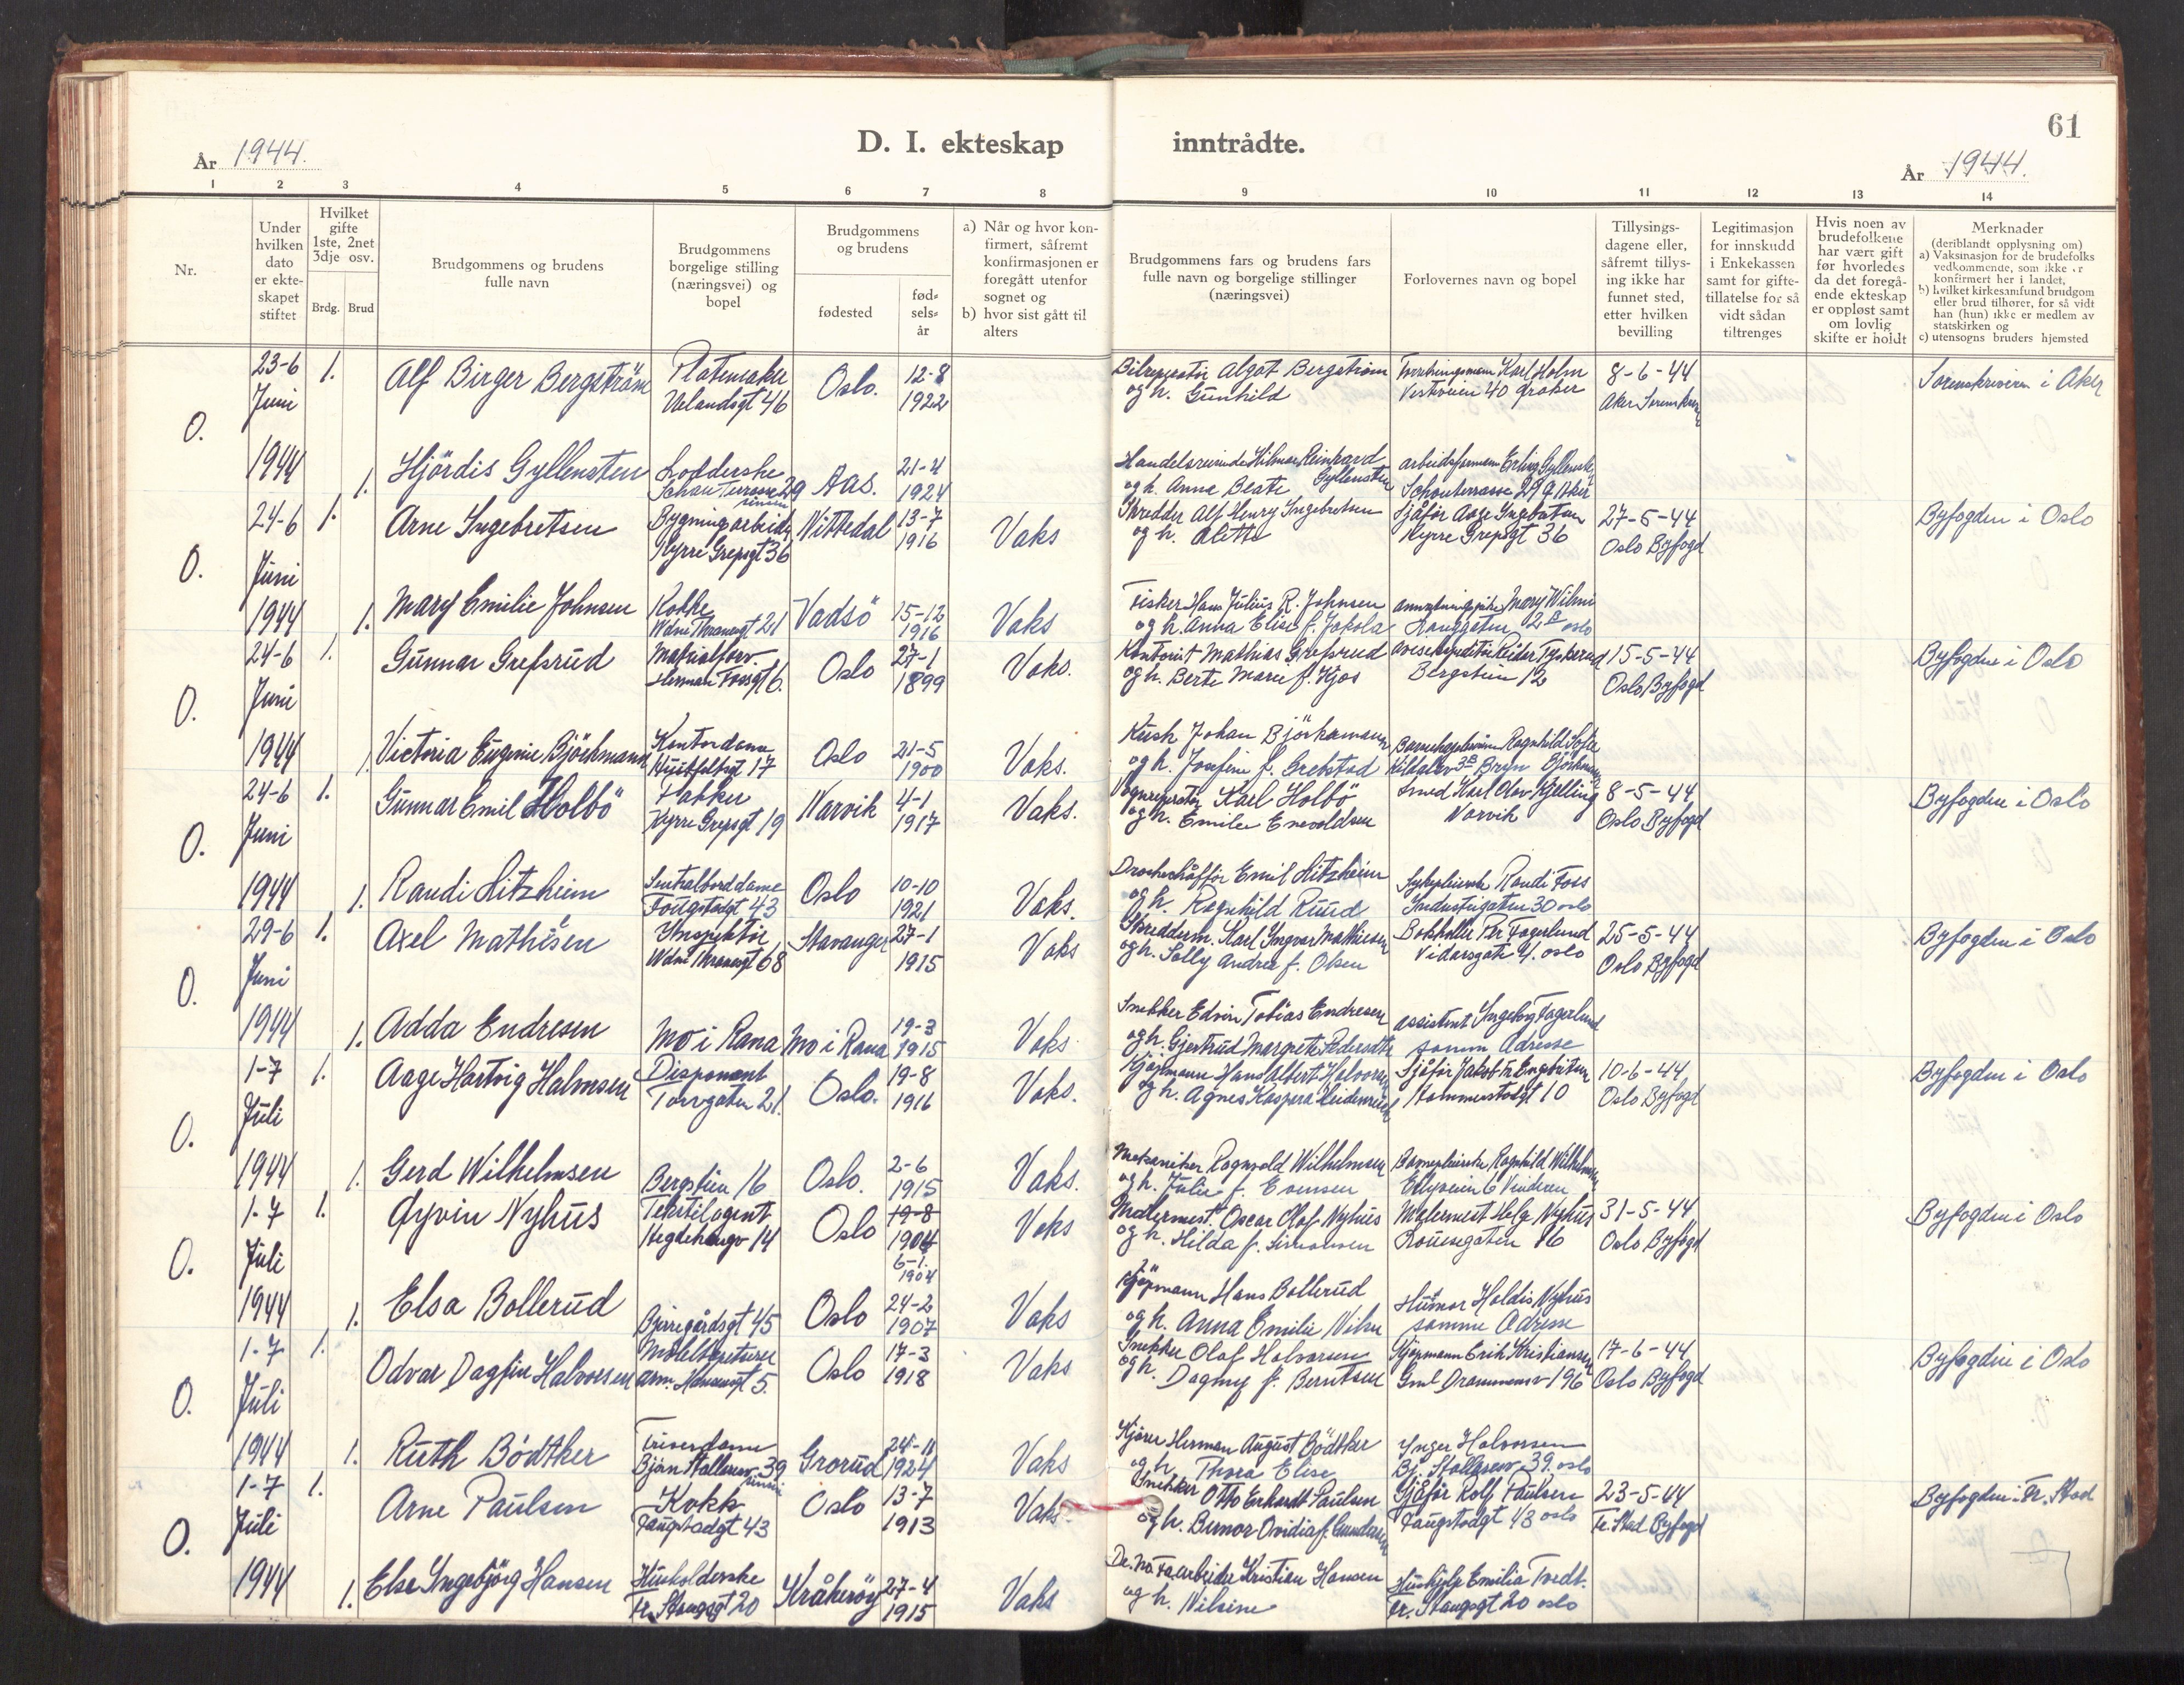 61
År 1944.
D. I. ekteskap inntrådte.
År 1944.
1 2 3 4 5 6 7 8 9 10 11 12 13 14
Nr.
Under hvilken dato er ekteskapet stiftet
Hvilket gifte 1ste, 2net 3dje osv.
Brdg. Brud
Brudgommens og brudens fulle navn
Brudgommens borgelige stilling (næringsvei) og bopel
Brudgommens og brudens
fødested
fødselsår
a) Når og hvor konfirmert, såfremt konfirmasjonen er foregått utenfor sognet og
b) hvor sist gått til alters
Brudgommens fars og brudens fars fulle navn og borgelige stillinger (næringsvei)
Forlovernes navn og bopel
Tillysingsdagene eller, såfremt tillysing ikke har funnet sted, etter hvilken bevilling
Legitimasjon for innskudd i Enkekassen samt for giftetillatelse for så vidt sådan tiltrenges
Hvis noen av brudefolkene har vært gift før hvorledes da det foregående ekteskap er oppløst samt om lovlig skifte er holdt
Merknader
(deriblandt opplysning om)
a) Vaksinasjon for de brudefolks vedkommende, som ikke er konfirmert her i landet,
b) hvilket kirkesamfund brudgom eller brud tilhører, for så vidt han (hun) ikke er medlem av statskirken og
c) utensogns bruders hjemsted
O. 23-6 Juni 1944
1. Alf Birger Bergström Oslo. 12-8 1922
Algot Bergström og h. Gunhild
Karl Holm
8-6-44
Sorenskriveren i Aker
1. Hjördis Gyllensten Aas. 21-4 1924
Hilmar Reinhard Gyllensten og h. Anna Beate
O. 24-6 Juni 1944
1. Arne Ingebretsen Nittedal 13-7 1916 Vaks
Skredder Alf Henry Ingebretsen og h. Alette
Sjåför Aage Ingebretsen
27-5-44 Oslo Byfogd
Byfogden i Oslo
1. Mary Emilie Johnsen Kokke Vadsö 15-12 1916 Vaks
Fisker Hans Julius R. Johnsen og h. Anna Elise f. Jokola
O. 24-6 Juni 1944
1. Gunnar Grefsrud Oslo 27-1 1899 Vaks.
Kontorist Mathias Grefsrud og h. Berte Marie f. Kjos
Bergstien 12
15-5-44 Oslo Byfogd
Byfogden i Oslo
1. Victoria Eugenie Björkmann Kontordame 17 Oslo 21-5 1900 Vaks.
Kusk Johan Björkmann og h. Josefine f. Grebstad
O. 24-6 Juni 1944
1. Gunnar Emil Holbö Pakker 19 Narvik 4-1 1917 Vaks.
Karl Holbö og h. Emilie Enevoldsen
Smed Karl Olav Kjelling Narvik
8-5-44 Oslo Byfogd
Byfogden i Oslo
1. Randi Litzheim Sentralborddame 43 Oslo 10-10 1921 Vaks.
Emil Litzheim og h. Ragnhild Ruud
Randi Foss Industrigaten 30 oslo
O. 29-6 Juni 1944
1. Axel Mathisen Inspektör 68 Stavanger 27-1 1915 Vaks
Skredderm. Karl Ingvar Mathiesen og h. Solly Andrea f. Olsen
Bokholder Fagerlund Vidarsgate 4. oslo
25-5-44 Oslo Byfogd
Byfogden i Oslo
1. Adda Endresen Mo i Rana Mo i Rana 19-3 1915 Vaks
Snekker Edvin Tobias Endresen og h. Gjertrud Margrete Pedersdtr
Assistent Ingeborg Fagerlund samme Adresse
O. 1-7 Juli 1944
1. Aage Hartvig Halvorsen Disponent Torvgaten 21. Oslo. 19-8 1916 Vaks.
Kjöpmann Hans Albert Halvorsen og h. Agnes Kaspara
10-6-44 Oslo Byfogd
Byfogden i Oslo
1. Gerd Wilhelmsen Bergstien 16 Oslo. 2-6 1915 Vaks.
Mekaniker Ragnvald Wilhelmsen og h. Julie f. Evensen
Ragnhild Wilhelmsen
O. 1-7 Juli 1944
1. Øyvin Nyhus Tekstilagent Hegdehaugv 14 Oslo 19-8 1904 6-1. 1904 Vaks
Malermest. Oscar Olaf Nyhus og h. Hilda f. Simonsen
Malermest Helg Nyhus
31-5-44 Oslo Byfogd
Byfogden i Oslo
1. Elsa Bollerud Bjerregårdsgt 45 Oslo 24-2 1907 Vaks
Kjöpmann Hans Bollerud og h. Anna Emilie
Husmor Haldis Nyhus samme Adresse
O. 1-7 Juli 1944
1. Odvar Dagfin Halvorsen 5. Oslo 17-3 1918 Vaks
Snekker Olaf Halvorsen og h. Dagny f. Berntsen
Kjöpmann Erik Kristiansen Gml Drammensv 196
17-6-44 Oslo Byfogd
Byfogden i Oslo
1. Ruth Bödtker 39 Grorud 24-11 1924 Vaks
Kjörer Herman August Bödtker og h. Thora Elise
Inger Halvorsen 39. oslo
O. 1-7 Juli 1944
1. Arne Paulsen Kokk 43 Oslo 13-7 1913 Vaks.
Snekker Otto Erhardt Paulsen og h.
Sjåför Rolf Paulsen 43 oslo
23-5-44 Fr. Stad Byfogd
Byfogden i Fr. Stad
1. Else Ingebjörg Hansen Husholderske 20 Kråkeröy 27-4 1915 Vaks
Kristian Hansen og h. Nilsine
Emilia 20 oslo